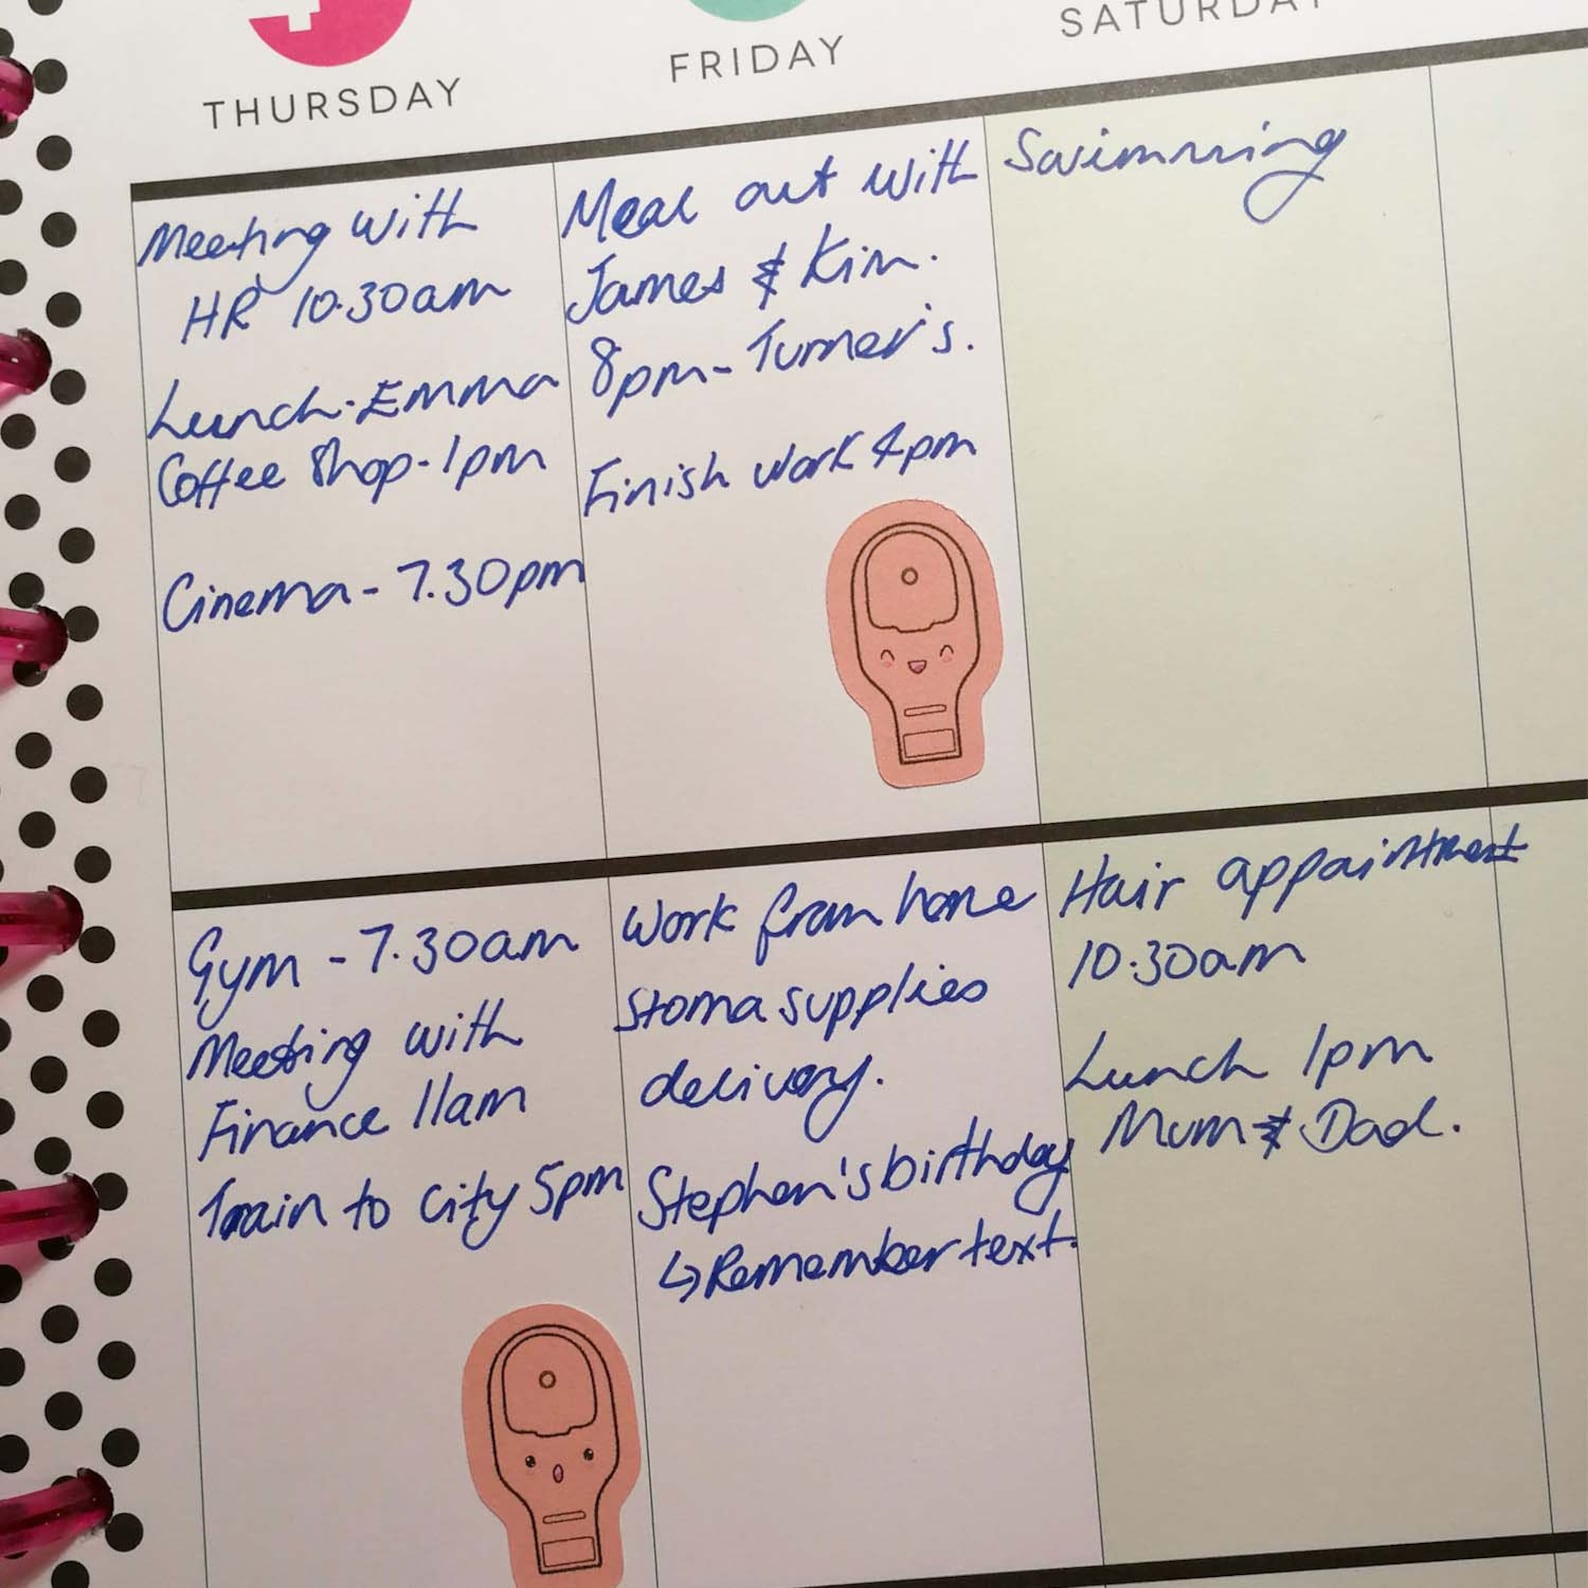 THURSDAY
FRIDAY
SATURDAY
Meeting with
HR 10.30am
Lunch-Emma
Coffee Shop-1pm
Cinema-7.30pm
Meal out with
James & Kim.
8pm-Turner's.
Finish work 4pm
Swimming
Gym-7.30am
Meeting with
Finance 11am
Train to city 5pm
Work from home
Stoma supplies
delivery.
Stephen's birthday
↳Remember text.
Hair appointment
10.30am
Lunch 1pm
Mum & Dad.